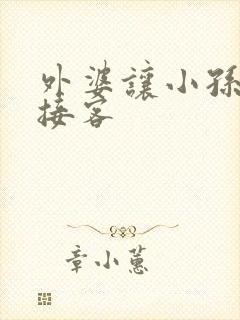 外婆讓小孫
接客
章小蕙